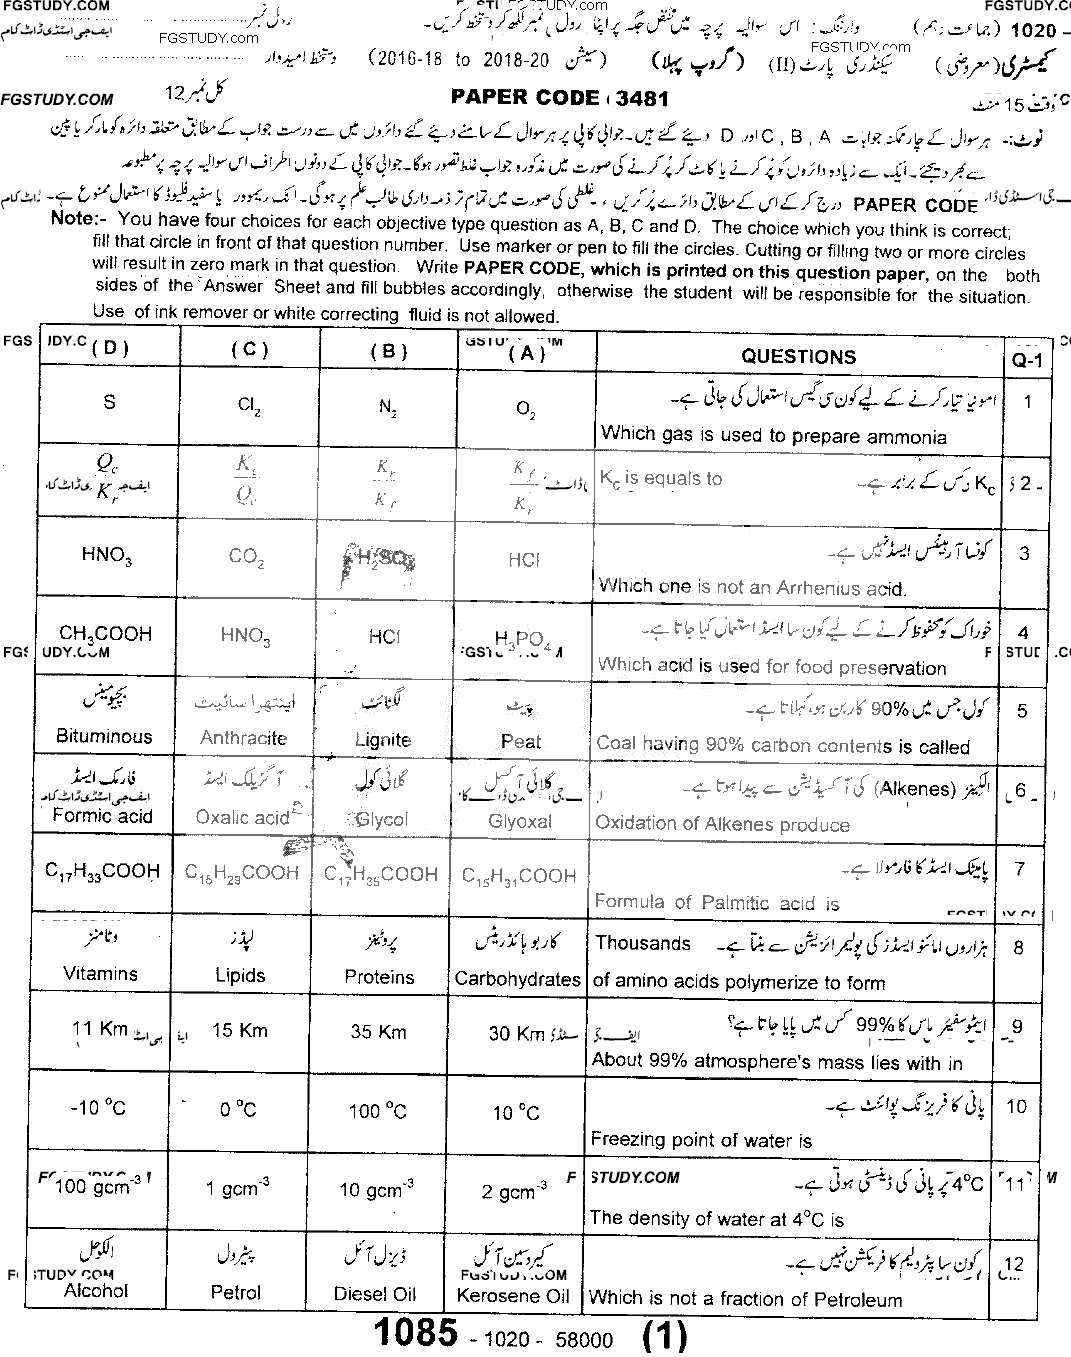 FGSTUDY.COM
FGSTUDY.COM
FGSTUDY.com
1020 - (جماعت دہم) وارننگ: اس سوالیہ پرچہ میں مختص جگہ پر اپنا رول نمبر لکھ کر دستخط کریں۔ رول نمبر
ایف جی اسٹڈی ڈاٹ کام
FGSTUDY.com
کیمسٹری (معروضی) سیکنڈری پارٹ (II) (گروپ پہلا) (سیشن 2016-18 to 2018-20) دستخط امیدوار
FGSTUDY.COM
وقت 15 منٹ PAPER CODE 3481 کل نمبر 12
نوٹ:- ہر سوال کے چار ممکنہ جوابات A ، B ، C اور D دیئے گئے ہیں۔ جوابی کاپی پر ہر سوال کے سامنے دیئے گئے دائروں میں سے درست جواب کے مطابق متعلقہ دائرہ کو مارکر یا پین
سے بھر دیجئے۔ ایک سے زیادہ دائروں کو پُر کرنے یا کاٹ کر پُر کرنے کی صورت میں مذکورہ جواب غلط تصور ہوگا۔ جوابی کاپی کے دونوں اطراف اس سوالیہ پرچہ پر مطبوعہ
PAPER CODE درج کر کے اس کے مطابق دائرے پُر کریں ، غلطی کی صورت میں تمام تر ذمہ داری طالب علم پر ہوگی۔ انک ریموور یا سفید فلیوڈ کا استعمال ممنوع ہے۔
Note:- You have four choices for each objective type question as A, B, C and D. The choice which you think is correct;
fill that circle in front of that question number. Use marker or pen to fill the circles. Cutting or filling two or more circles
will result in zero mark in that question. Write PAPER CODE, which is printed on this question paper, on the both
sides of the Answer Sheet and fill bubbles accordingly, otherwise the student will be responsible for the situation.
Use of ink remover or white correcting fluid is not allowed.
(D) (C) (B) (A) QUESTIONS Q-1
امونیا تیار کرنے کے لیے کون سی گیس استعمال کی جاتی ہے۔
S Cl₂ N₂ O₂ 1
Which gas is used to prepare ammonia
Qc/Kr Kc/Qc Kr/Kf Kf/Kr Kc is equals to Kc کس کے برابر ہے۔ 2
کونسا آرہینئس ایسڈ نہیں ہے۔
HNO₃ CO₂ H₂SO₄ HCl 3
Which one is not an Arrhenius acid.
خوراک کو محفوظ کرنے کے لیے کون سا ایسڈ استعمال کیا جاتا ہے۔
CH₃COOH HNO₃ HCl H₃PO₄ 4
Which acid is used for food preservation
بچیومینس اینتھراسائیٹ لگنائٹ پیٹ کول جس میں 90% کاربن ہو، کہلاتا ہے۔ 5
Bituminous Anthracite Lignite Peat Coal having 90% carbon contents is called
فارمک ایسڈ آگزیلک ایسڈ گلائی کول گلائی آکسل الکینز (Alkenes) کی آکسیڈیشن سے پیدا ہوتا ہے۔ 6
Formic acid Oxalic acid Glycol Glyoxal Oxidation of Alkenes produce
پامیٹک ایسڈ کا فارمولا ہے۔
C₁₇H₃₃COOH C₁₅H₂₉COOH C₁₇H₃₅COOH C₁₅H₃₁COOH 7
Formula of Palmitic acid is
وٹامنز لپڈز پروٹینز کاربوہائڈریٹس Thousands ہزاروں امائنو ایسڈز کی پولیمرائزیشن سے بنتا ہے۔ 8
Vitamins Lipids Proteins Carbohydrates of amino acids polymerize to form
11 Km 15 Km 35 Km 30 Km ایٹموسفیئر ماس کا 99% کس میں پایا جاتا ہے؟ 9
About 99% atmosphere's mass lies with in
پانی کا فریزنگ پوائنٹ ہے۔
-10 °C 0 °C 100 °C 10 °C 10
Freezing point of water is
FGSTUDY.COM
100 gcm⁻³ 1 gcm⁻³ 10 gcm⁻³ 2 gcm⁻³ 4°C پر پانی کی ڈینسٹی ہوتی ہے۔ 11
The density of water at 4°C is
الکوحل پیٹرول ڈیزل آئل کیروسین آئل کون سا پٹرولیم کا فریکشن نہیں ہے۔ 12
Alcohol Petrol Diesel Oil Kerosene Oil Which is not a fraction of Petroleum
1085 - 1020 - 58000 (1)